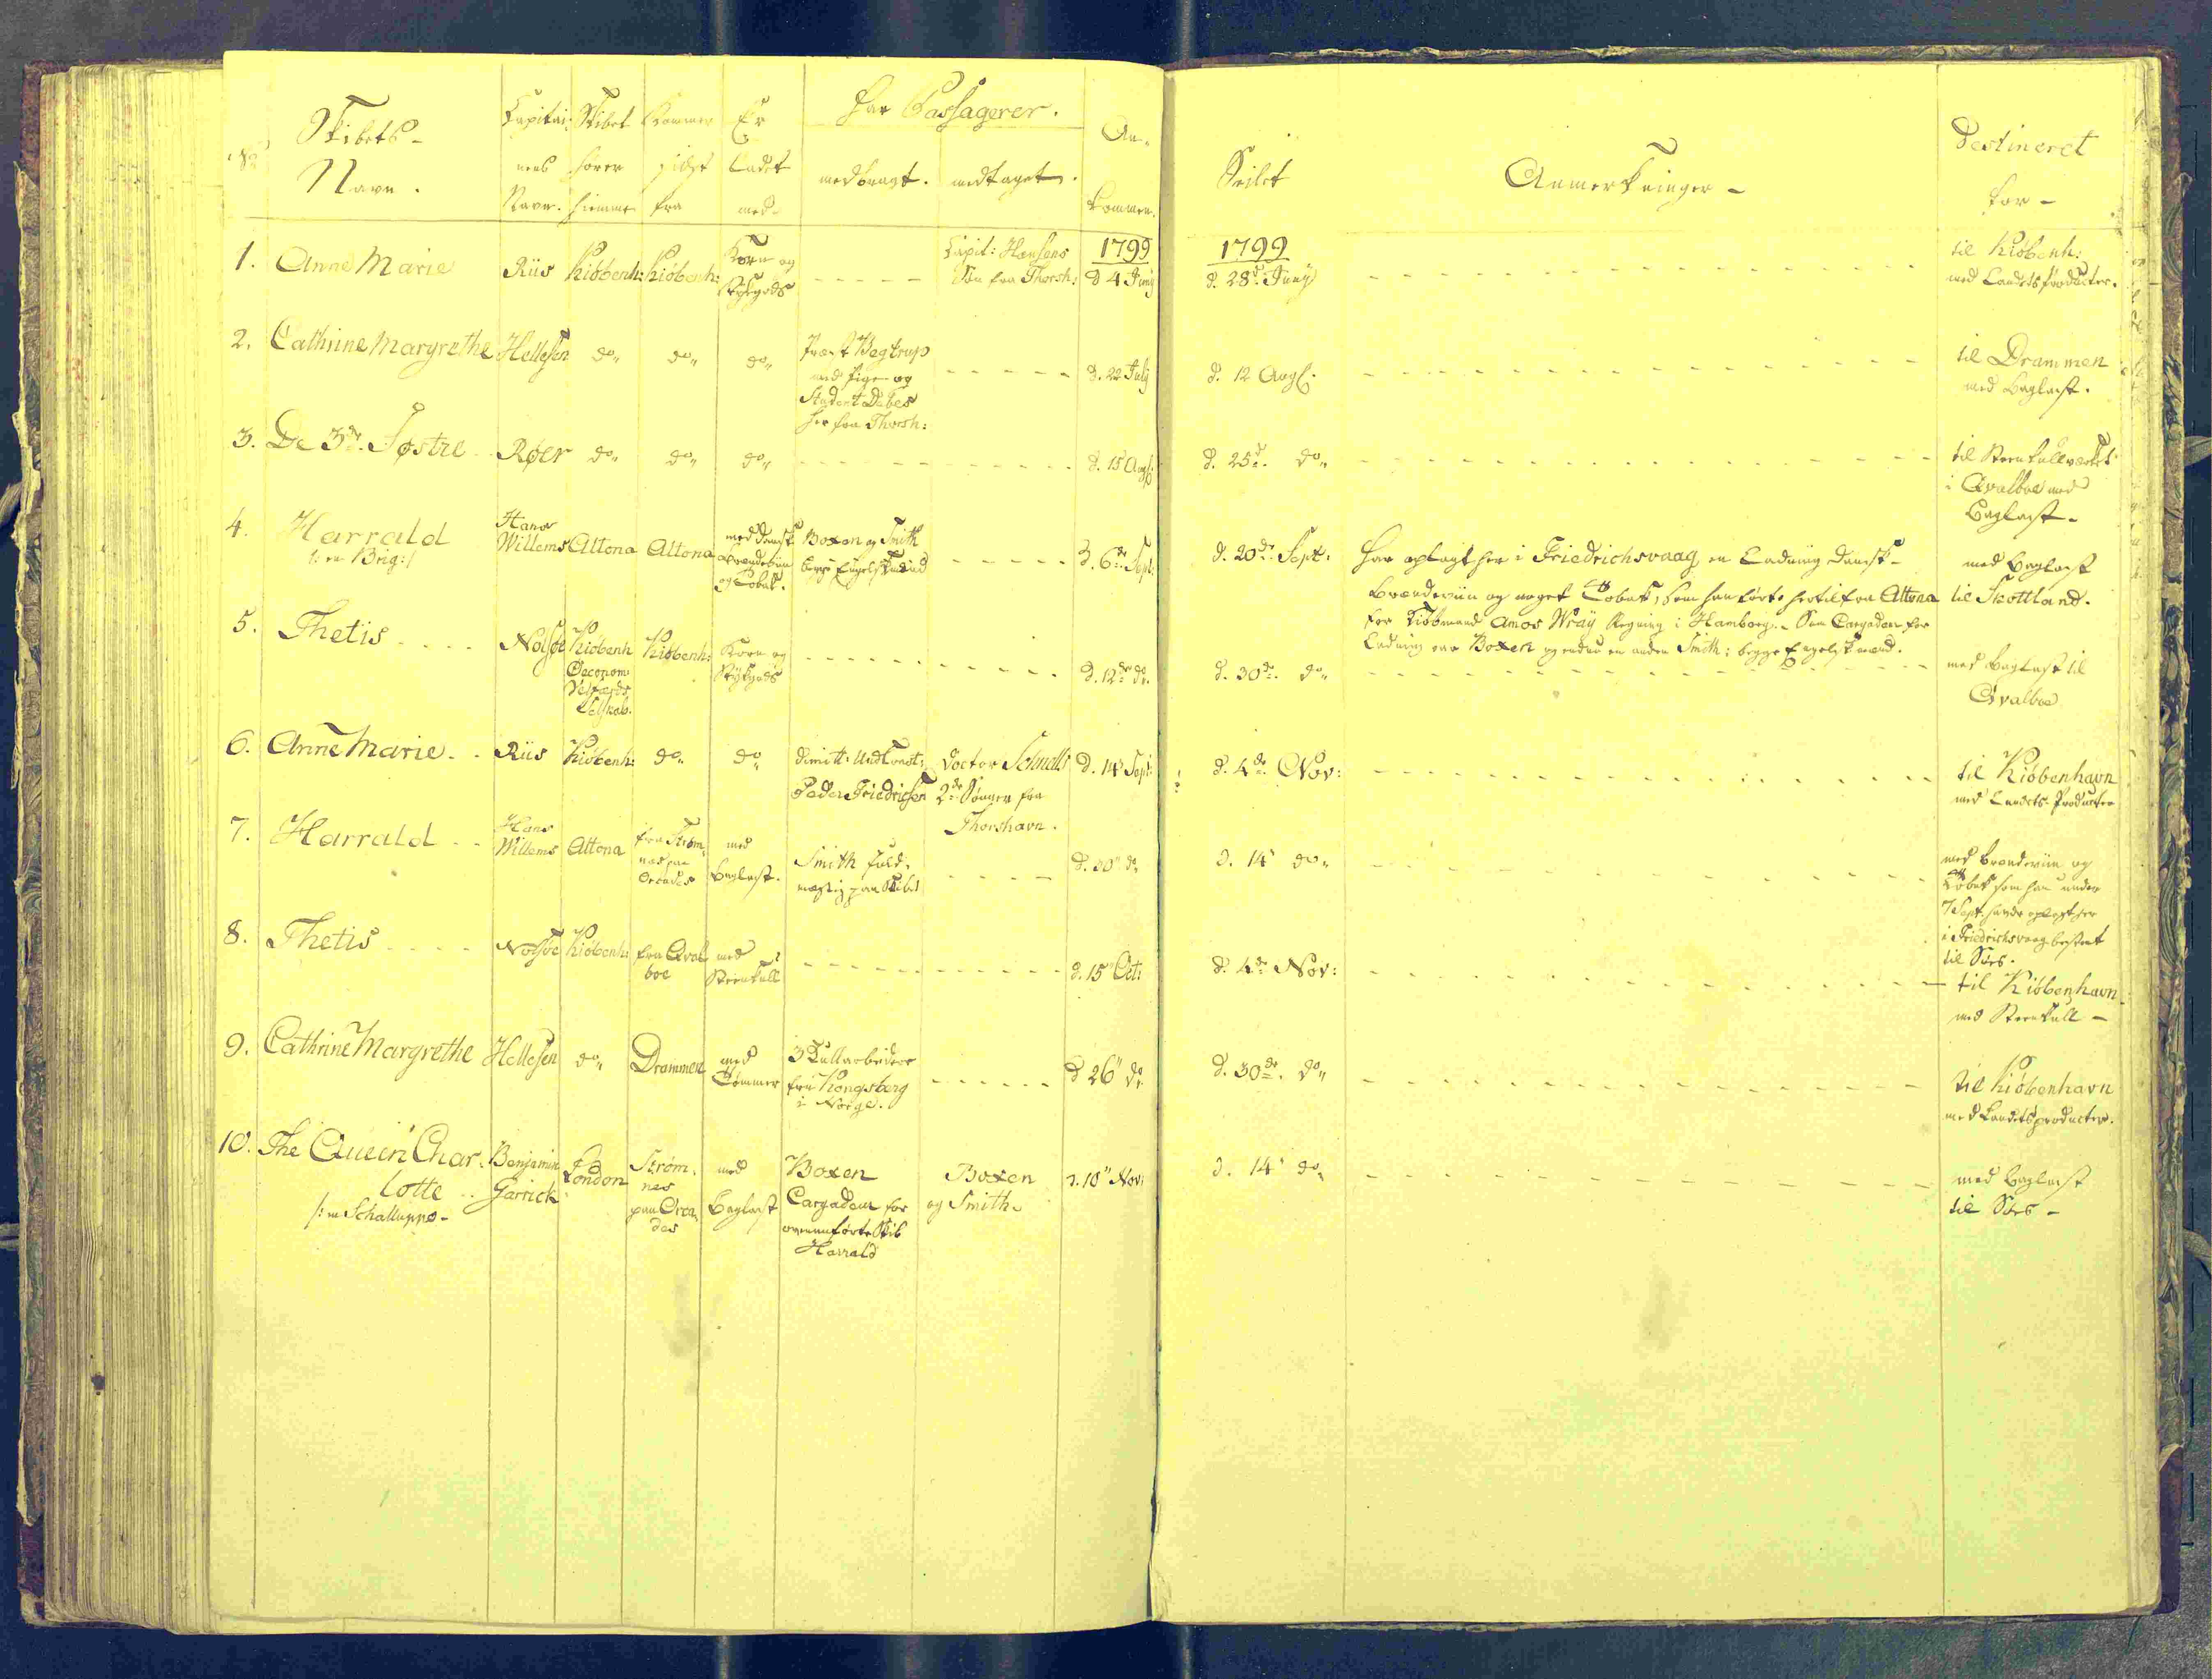 No
Skibets-
Navn.
Capitai-
nens
Navn.
Skibet
hører
hiemme
Kommer
sidst
fra
Er
Ladet
med-
Har Passagerer.
medbragt.
medtaget.
An-
kommen.
Seilet
Anmerkninger-
Destineret
for-
1.
Anne Marie
Riis
Kiöbenh:
Kiöbenh:
Korn og
Stykgods
Capit: Hansens
Søn fra Thorsh:
1799
d 4 Juny
1799
d. 28de Juny
til Kiöbenh:
med Landets Producter.
2.
Cathrine Margrethe
Hellesen
do„
do„
do„
Præst Begtrup
med Pige og
Student Debes
her fra Thorsh:
d. 22 July
d. 12 Aug.
til Drammen
med Baglast.
3.
De 3de Søstre
Røer
do„
do„
do„
d. 15 Aug:
d. 25de do„
til Steenkullværket
i Qvalboe med
Baglast-
4.
Harrald
/: en Brig:/
Hans
Willems
Altona
Altona
med Dansk
Brændeviin
og Tobak.
Boxen og Smith
begge Engelskmænd
d. 6de Sept:
d. 20de Sept:
har oplagt her i Friedrichsvaag en Ladning Dansk-
Brændeviin og noget Tobak, som han førte hertil fra Altona
for Kiöbmand Amos Wray Regning i Hamborg.- Som Cargadeur for
Ladning var Boxen og endnu en anden Smith; begge Engelskmænd.
med Baglast
til Skottland.
5.
Thetis
Nolsøe
Kiöbenh
Oeconom
Velfærds
Selskab.
Kiöbenh:
Korn og
Stykgods
d. 12de do.
d. 30de do„
med Baglast til
Qvalboe
6.
Anne Marie
Riis
Kiöbenh:
do„
do„
Dimitt:
Peder Friedrichsen
Doctor
2de Sønner fra
Thorshavn.
d. 14 Sept:
d. 4de Nov:
til Kiöbenhavn
med Landets Producter
7.
Harrald
Hans
Willems
Altona
fra Strøm-
nes paa
Orcades
med
Baglast.
Smith Fuld-
mægtig paa Skibet
d. 30" do
d. 14" do„
med Brændeviin og
Tobak som han under
7 Sept. havde oplagt her
i Friedrichsvaag bestemt
til Søes.
8.
Thetis
Nolsøe
Kiöbenh:
fra Qval-
boe
med
Steenkull
d. 15" Oct:
d. 4de Nov:
til Kiöbenhavn
med Steenkull -
9.
Cathrine Margrethe
Hellesen
do„
Drammen
med
Tømmer
3 Kullarbeidere
fra Kongsberg
i Norge.
d 26" do
d. 30de do„
til Kiöbenhavn
med Landets Producter.
10.
The Queen Char-
lotte
/: en Schaluppe-
Benjamin
Garrick
London
Strøm-
nes
paa Orca-
des
med
Baglast
Boxen
Cargadeur for
ovenanførte Skib
Harrald
Boxen
og Smith.
d. 10" Nov:
d. 14" do„
med Baglast
til Søes -